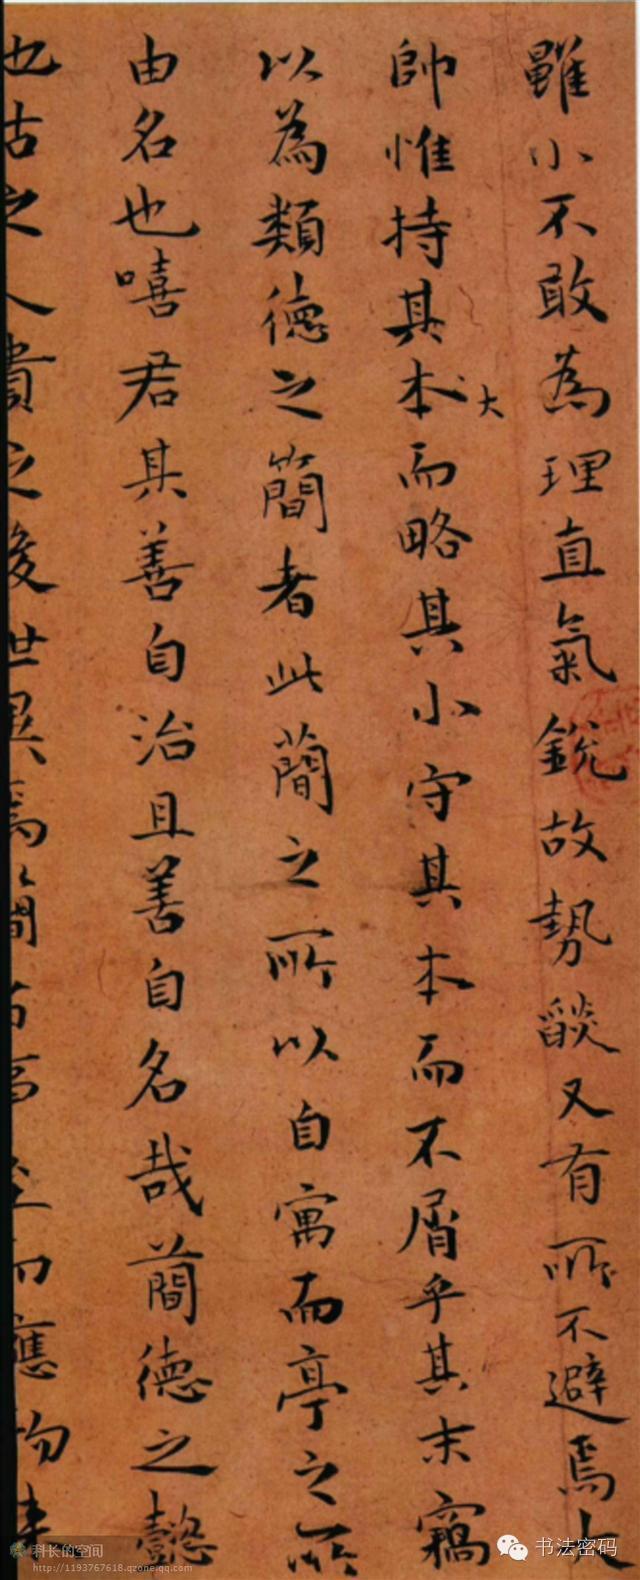 雖小不敢為理直氣銳故勢燄又有所不避焉大
帥惟持其本而略其小守其本而不屑乎其末竊
大
以為類德之簡者此簡之所以自寓而亭之所
由名也嘻君其善自治且善自名哉簡德之懿
也古之人貴之後世異焉簡者事至而應物來
科长的空间
http://1193767618.qzone.qq.com
书法密码